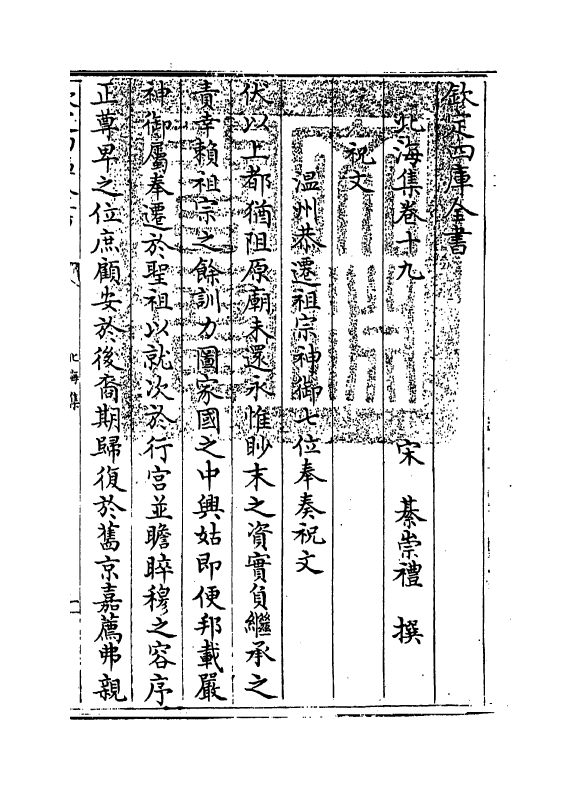 欽定四庫全書
北海集卷十九
宋 綦崇禮 撰
祝文
溫州恭遷祖宗神御七位奉奏祝文
伏以上都猶阻原廟未還永惟眇末之資實負繼承之
責幸賴祖宗之餘訓力圖家國之中興姑即便邦載嚴
神御屬奉遷於聖祖以就次於行宮並瞻睟穆之容序
正尊卑之位庶顧安於後裔期歸復於舊京嘉薦弗親
北海集